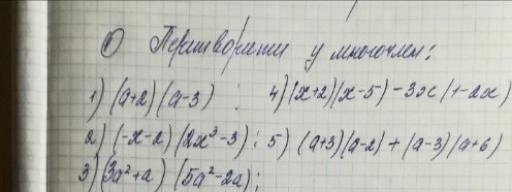 ① Перетворити у многочлен:
1) (a+2)(a-3) ; 4) (x+2)(x-5) - 3x(1-2x)
2) (-x-2)(2x³-3) ; 5) (a+3)(a-2) + (a-3)(a+6)
3) (3a²+a)(5a²-2a);